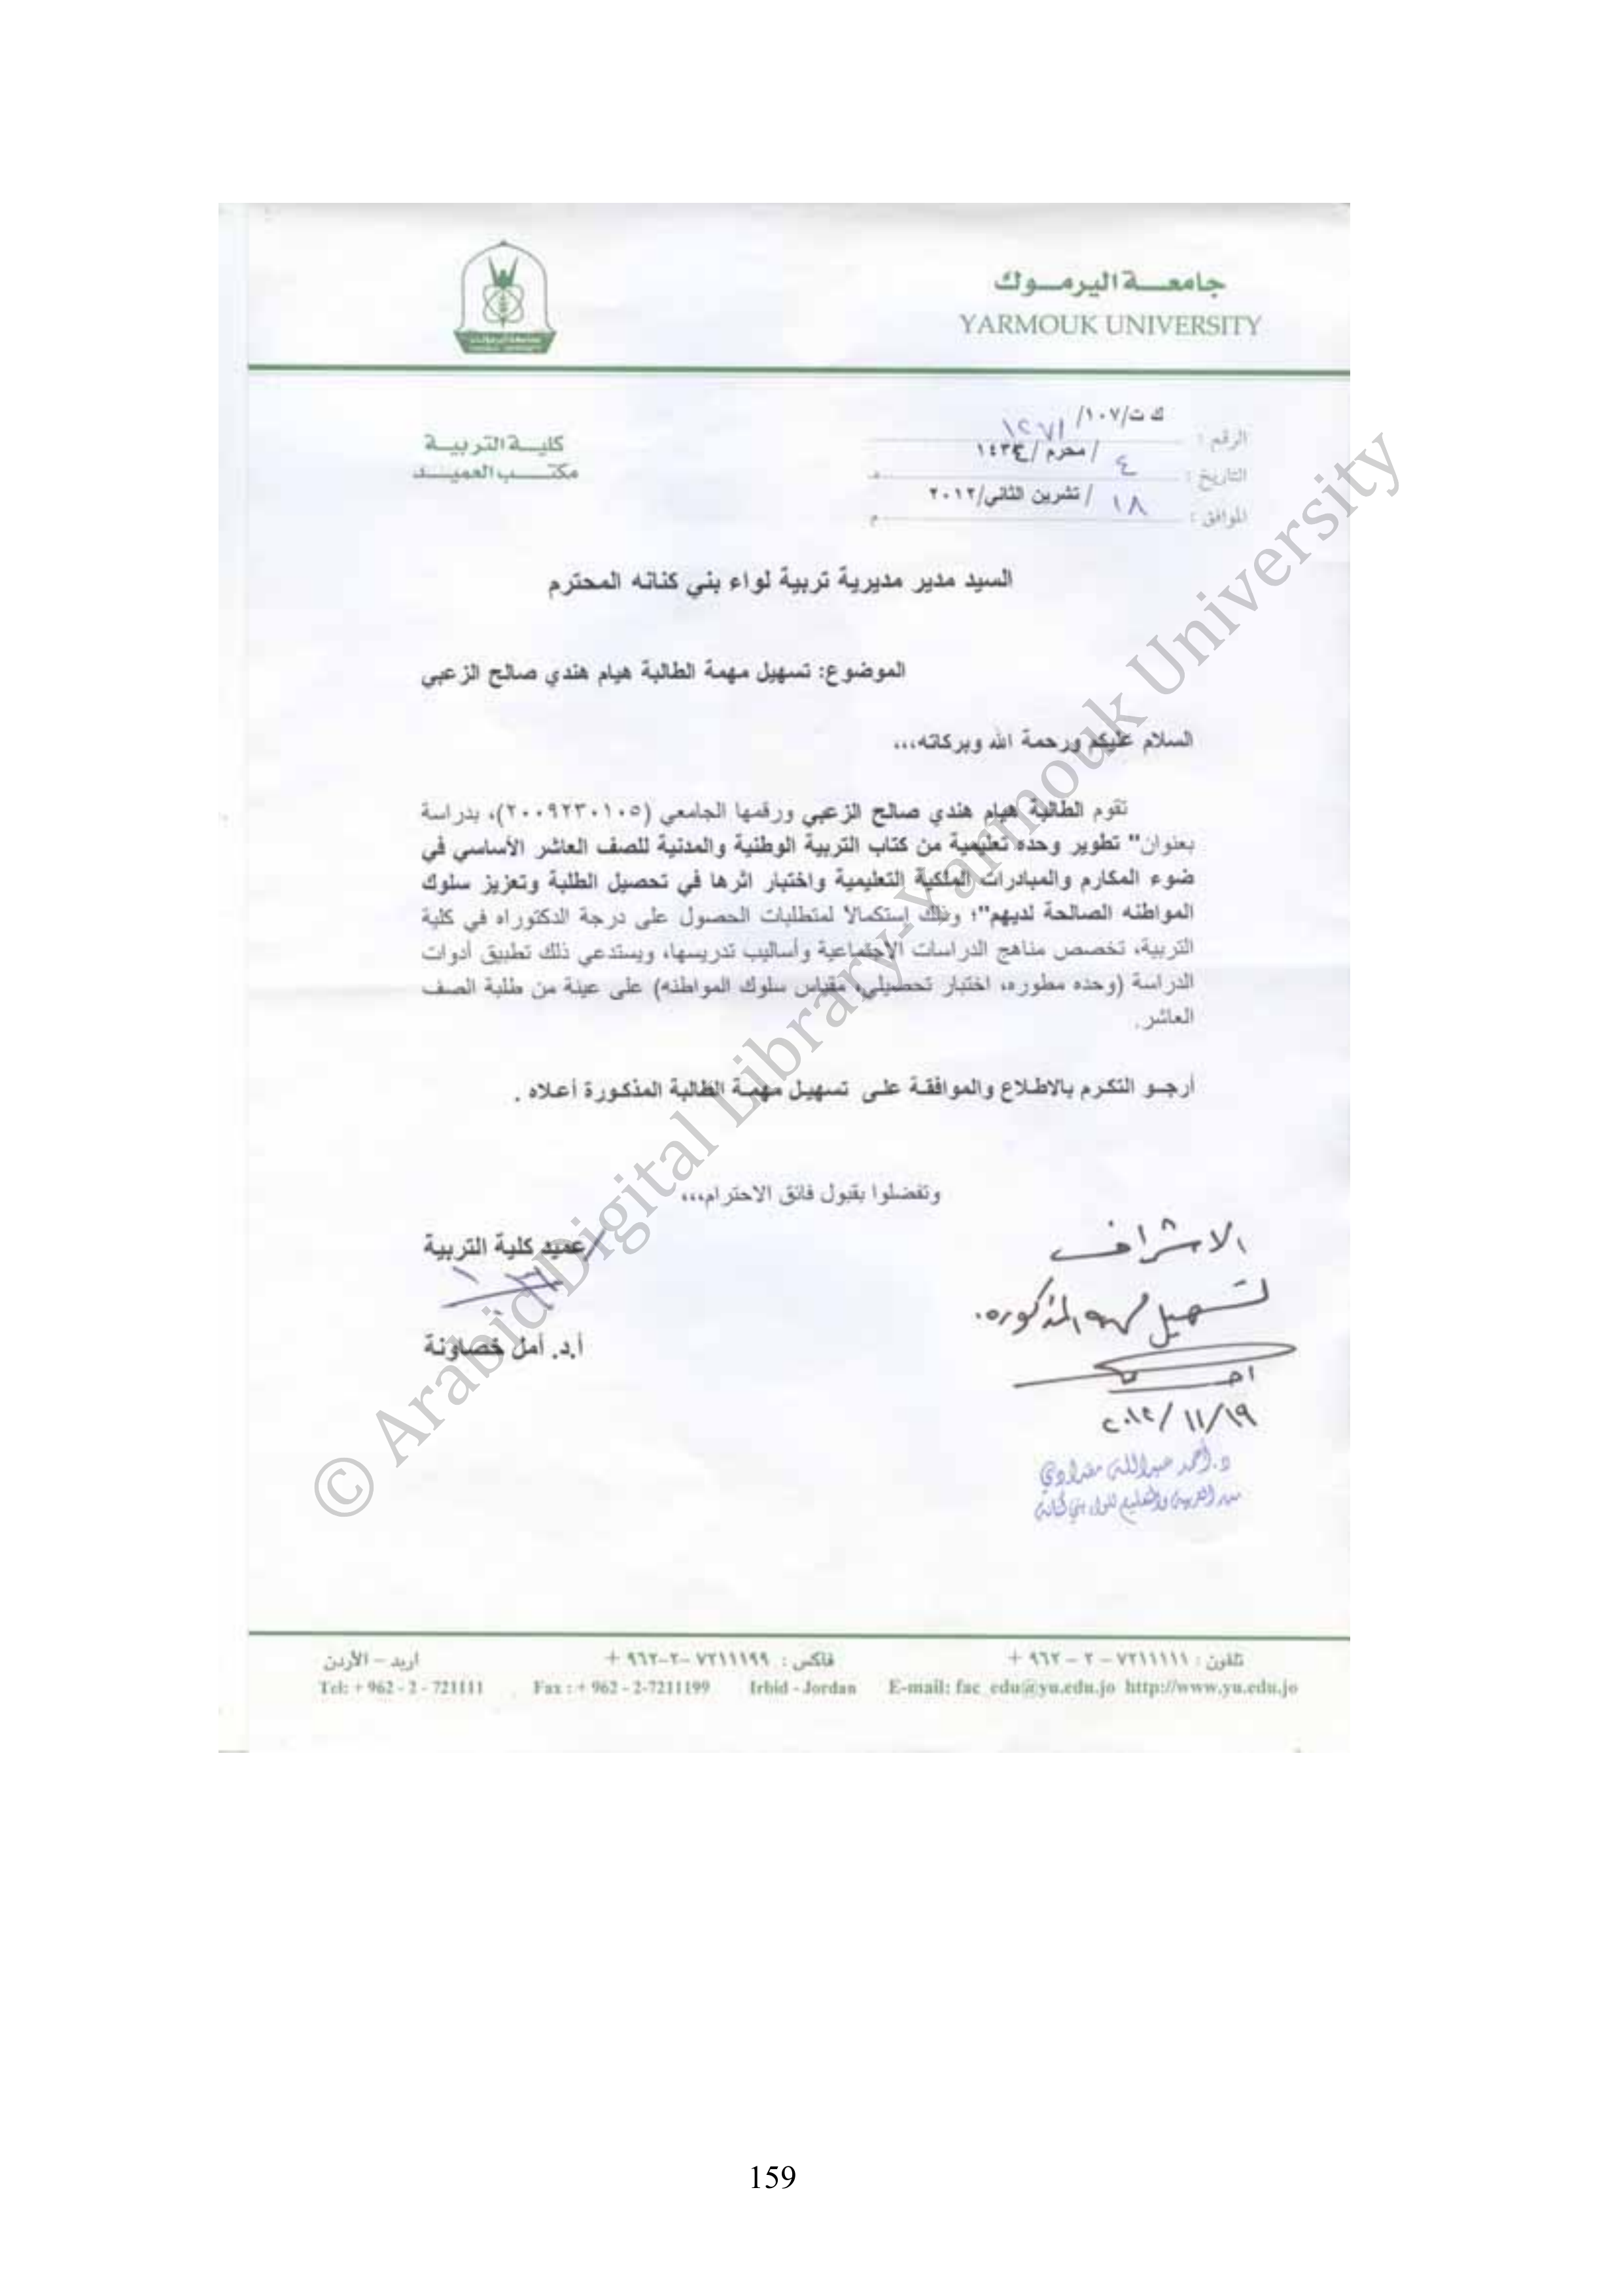 جامعة اليرموك
YARMOUK UNIVERSITY
كلية التربية
مكتب العميد
الرقم : ك ت/١٠٧/١٢٧١
التاريخ : ٤ / محرم /١٤٣٤ هـ
الموافق : ١٨ / تشرين الثاني/٢٠١٢ م
السيد مدير مديرية تربية لواء بني كنانه المحترم
الموضوع: تسهيل مهمة الطالبة هيام هندي صالح الزعبي
السلام عليكم ورحمة الله وبركاته،،،
تقوم الطالبة هيام هندي صالح الزعبي ورقمها الجامعي (٢٠٠٩٢٣٠١٠٥)، بدراسة
بعنوان" تطوير وحده تعليمية من كتاب التربية الوطنية والمدنية للصف العاشر الأساسي في
ضوء المكارم والمبادرات الملكية التعليمية واختبار اثرها في تحصيل الطلبة وتعزيز سلوك
المواطنه الصالحة لديهم"؛ وذلك إستكمالا لمتطلبات الحصول على درجة الدكتوراه في كلية
التربية، تخصص مناهج الدراسات الاجتماعية وأساليب تدريسها، ويستدعي ذلك تطبيق أدوات
الدراسة (وحده مطوره، اختبار تحصيلي، مقياس سلوك المواطنه) على عينة من طلبة الصف
العاشر.
أرجو التكرم بالاطلاع والموافقة على تسهيل مهمة الطالبة المذكورة أعلاه .
وتفضلوا بقبول فائق الاحترام،،،
عميد كلية التربية
أ.د. أمل خصاونة
الاشراف
لتسهيل مهمة المذكوره.
٢٠١٢/١١/١٩
د.أحمد عبدالله
مدير التربية والتعليم للواء بني كنانة
تلفون : ٧٢١١١١١ – ٢ – ٩٦٢ +
فاكس : ٧٢١١١٩٩ –٢–٩٦٢ +
اربد – الأردن
Tel: + 962 - 2 - 721111 Fax : + 962 - 2-7211199 Irbid - Jordan E-mail: fac_edu@yu.edu.jo http://www.yu.edu.jo
© Arabic Digital Library-Yarmouk University
159